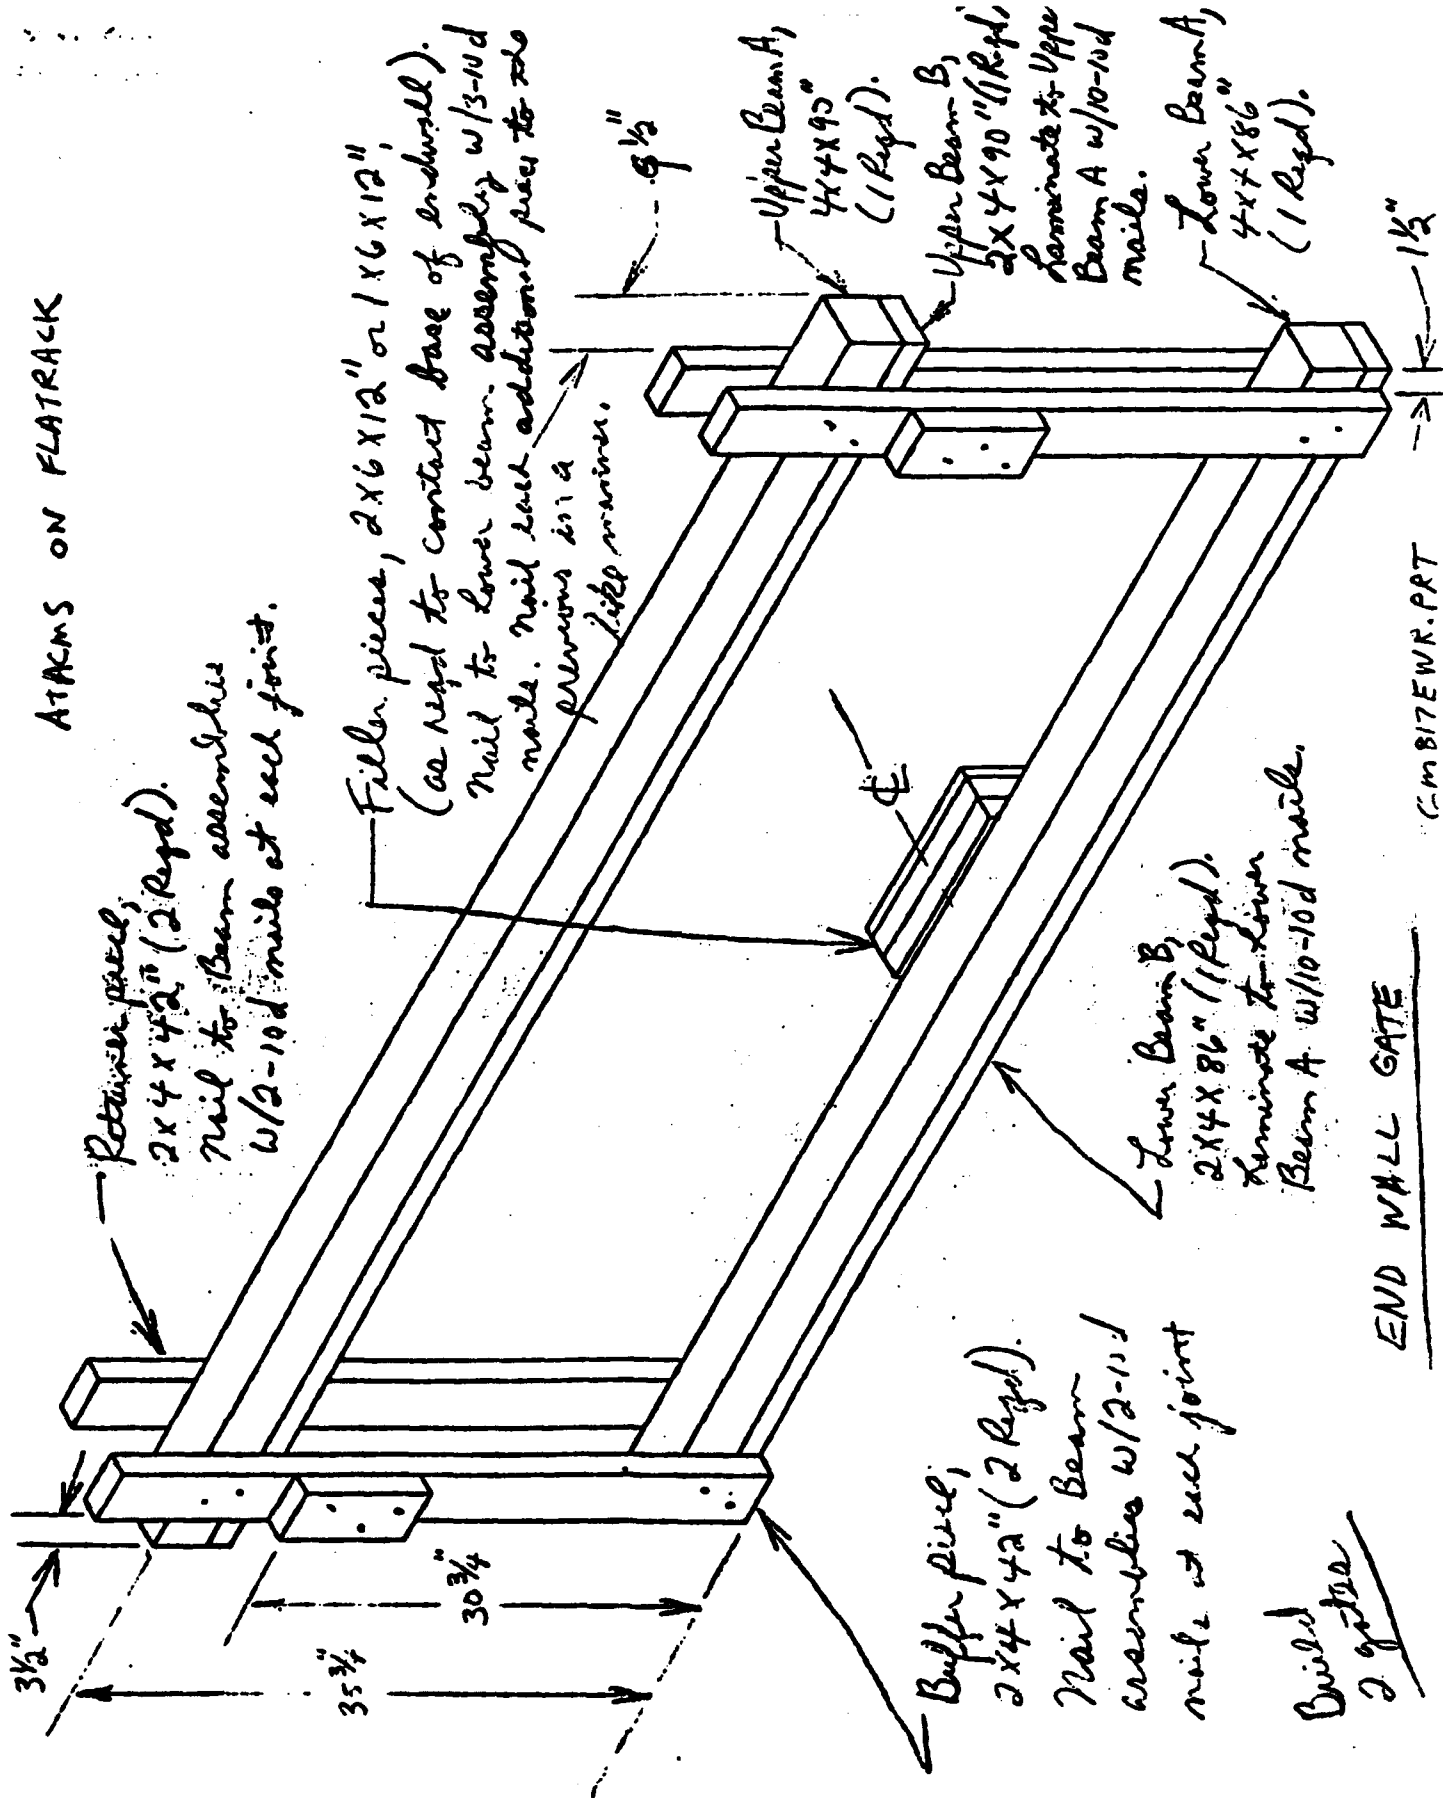 ATACMS ON FLATRACK
Retainer piece,
2X4X42" (2 Reqd).
Nail to Beam assemblies
W/2-10d nails at each joint.
Filler pieces, 2X6X12" or 1X6X12",
(as reqd to contact base of endwall).
Nail to Lower beam assembly w/3-10d
nails. Nail each additional piece to the
previous in a
like manner.
3½"
35¾"
30¾"
8½"
Upper Beam A,
4X4X90"
(1 Reqd).
Upper Beam B,
2X4X90" (1 Reqd).
Laminate to Upper
Beam A w/10-10d
nails.
Lower Beam A,
4X4X86"
(1 Reqd).
1½"
℄
Lower Beam B,
2X4X86" (1 Reqd).
Laminate to Lower
Beam A w/10-10d nails.
Buffer piece,
2X4X42" (2 Reqd).
Nail to Beam
assemblies w/2-10d
nails at each joint
Build
2 gates
END WALL GATE
CMB17EWR.PRT